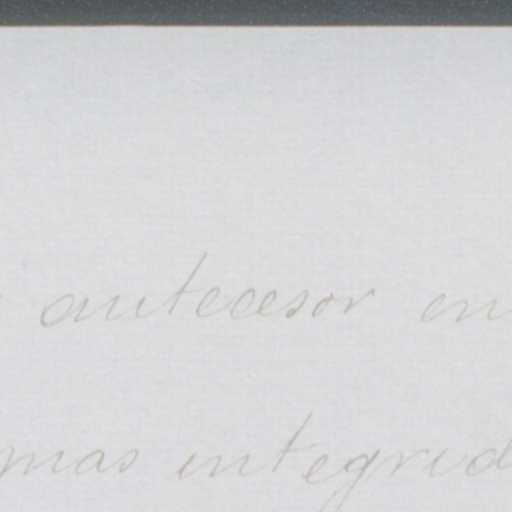 antecesor en
mas integrid